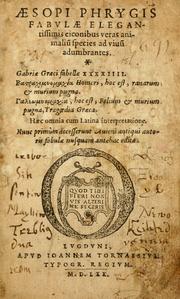 ÆSOPI PHRYGIS
FABVLÆ ELEGAN-
tissimis eiconibus veras ani-
maliũ species ad viuũ
adumbrantes.
Gabriæ Græci fabellæ XXXXIIII.
Βατραχομυομαχία Homeri, hoc est, ranarum
& murium pugna.
Γαλεωμυομαχία, hoc est, Felium & murium
pugna, Tragœdia Græca.
Hæc omnia cum Latina interpretatione.
Nunc primùm accesserunt Auieni antiqui auto-
ris fabulæ nusquam antehac editæ.
QVOD TIBI
FIERI NON
VIS ALTERI
NE FECERIS
LVGDVNI,
APVD IOANNEM TORNAESIVM
TYPOGR. REGIVM.
M. D. LXX.